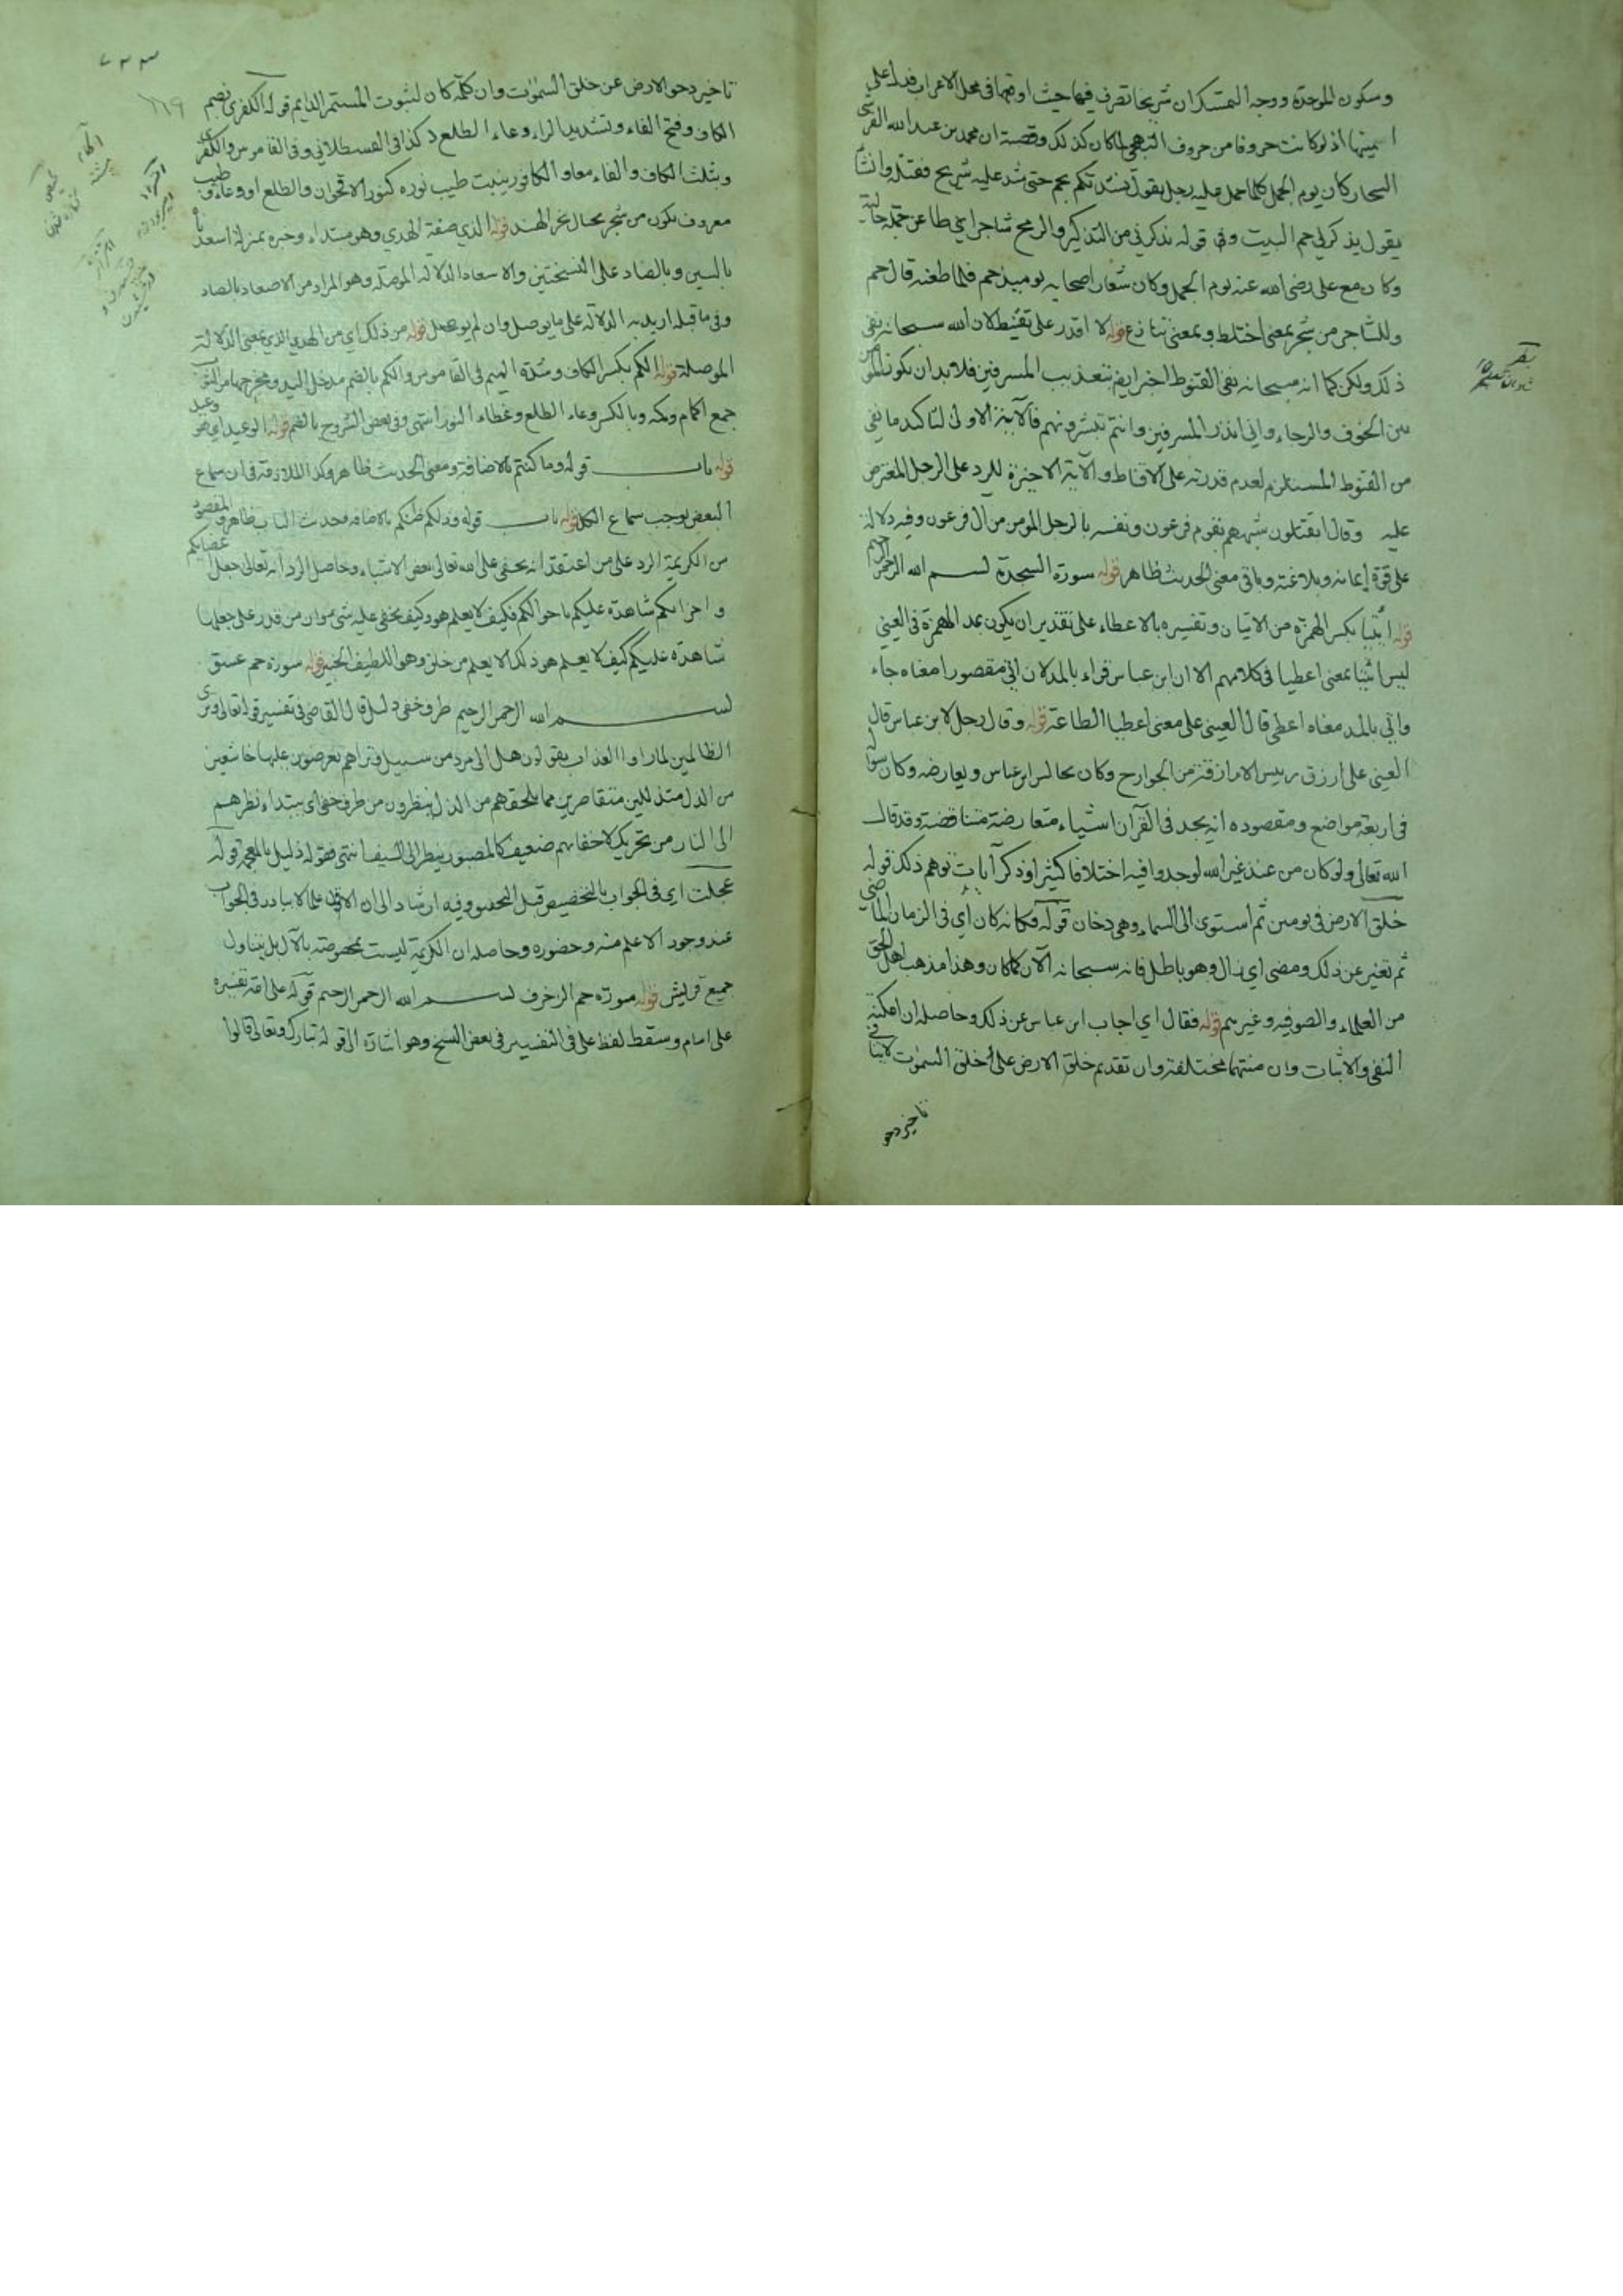 وسكون الموحدة ووجه التمسك ان شريحا تصرف فيها حيث اوقعها في محل الاعراب فدل على
اسميتها اذ لو كانت حروفا من حروف التهجي لما كان كذلك وقصته ان محمد بن عبد الله القرشي
السجاد كان يوم الجمل كلما حمل عليه رجل يقول نشدتكم بحم حتى شد عليه شريح فقتله وانشأ
يقول يذكرني حم البيت وفي قوله يذكرني من التذكير والرمح شاجر اي طاعن جملة حالية
وكان مع علي رضي الله عنه يوم الجمل وكان شعار اصحابه يوميذ حم فلما طعنه قال حم
وللشاجر من شجر بمعنى اختلط وبمعنى تنازع قوله لا اقدر على تقنيط لان الله سبحانه نفى
ذلك ولكن كما انه سبحانه نفى القنوط اخبر ايضا بتعذيب المسرفين فلا بد ان يكون المؤمن
بين الخوف والرجاء واني انذر المسرفين وانتم تبشرونهم فالآية الاولى لتاكيد ما نفى
من القنوط المستلزم لعدم قدرته على الاقناط والآية الاخيرة للرد على الرجل المعترض
عليه وقال اتقتلون شبههم بقوم فرعون ونفسه بالرجل المومن من آل فرعون وفيه دلالة
على قوة ايمانه وبلاغته وباقي معنى الحديث ظاهر قوله سورة السجدة بسم الله الرحمن الرحيم
قوله ائتيا بكسر الهمزة من الاتيان وتفسيره بالاعطاء على تقدير ان يكون بمد الهمزة في العيني
ليس ائتيا بمعنى اعطيا في كلامهم الا ان ابن عباس قراء بالمد لان اتى مقصورا معناه جاء
واتى بالمد معناه اعطى قال العيني على معنى اعطيا الطاعة قوله وقال رجل لابن عباس قال
العيني على ازرق رييس الازارقة من الخوارج وكان يجالس ابن عباس ويعارضه وكان سواله
في اربعة مواضع ومقصوده انه يجد في القرآن اشياء متعارضة متناقضة وقد قال
الله تعالى ولو كان من عند غير الله لوجدوا فيه اختلافا كثيرا وذكر آيات توهم ذلك قوله
خلق الارض في يومين ثم استوى الى السماء وهي دخان قوله فكانه كان اي في الزمان الماضي
ثم تغير عن ذلك ومضى اي زال وهو باطل فانه سبحانه الآن كما كان وهذا مذهب اهل الحق
من العلماء والصوفية وغيرهم قوله فقال اي اجاب ابن عباس عن ذلك وحاصله ان امكنة
النفي والاثبات وان منتهما مختلفة وان تقديم خلق الارض على خلق السموات لا ينافي
تاخير دحو
تاخير دحو الارض عن خلق السموات وان كلمة كان لثبوت المستمر الدايم قوله الكفرى بضم
الكاف وفتح الفاء وتشديد الراء وعاء الطلع كذا في القسطلاني وفي القاموس والكفرى
وبتثلث الكاف والفاء معا والكافور ينبت طيب نوره كنور الاقحوان والطلع او وعاءه وطيب
معروف يكون من شجر بجبال بحر الهند قوله الذي صفة الهدي وهو مبتداء وخبره بمنزلة اسعدناه
بالسين وبالصاد على النسختين والاسعاد الدلالة الموصلة وهو المراد من الاصعاد بالصاد
وفي ما قبله اريد به الدلالة على ما يوصل وان لم يوصل قوله من ذلك اي من الهدي الذي بمعنى الدلالة
الموصلة قوله الكم بكسر الكاف وشدة الميم في القاموس والكم بالضم مدخل اليد ومخرجها من الثوب
جمع اكمام وكمة وبالكسر وعاء الطلع وغطاء النور انتهى وفي بعض الشروح بالضم قوله الوعيد اي هو وعيد
قوله باب قوله وما كنتم بالاضافة ومعنى الحديث ظاهر وكذا الملازمة في ان سماع
البعض يوجب سماع الكل قوله باب قوله وذلكم ظنكم بالاضافة فحديث الباب ظاهر والمقصود
من الكريمة الرد على من اعتقد انه يخفى على الله تعالى بعض الاشياء وحاصل الرد انه تعالى جعل اعضايكم
واجزايكم شاهدة عليكم باحوالكم فكيف لا يعلم هو وكيف يخفى عليه شى سوا من قدر على جعلها
شاهدة عليكم كيف لا يعلم هو ذلك الا يعلم من خلق وهو اللطيف الخبير قوله سورة حم عسق
بسم الله الرحمن الرحيم طرف خفي ذليل قال القاضي في تفسير قوله تعالى وترى
الظالمين لما راوا العذاب يقولون هل الى مرد من سبيل وتراهم يعرضون عليها خاشعين
من الذل متذللين متقاصرين مما يلحقهم من الذل ينظرون من طرف خفي اى يبتداء نظرهم
الى النار من تحريك لاجفانهم ضعيف كالمصبور ينظر الى السيف انتهى فقوله ذليل بالمعجمة قوله
عجلت اي في الجواب بالتخصيص قبل الفحص وفيه ارشاد الى ان الاقل علما لا يبادر في الجواب
عند وجود الاعلم منه وحضوره وحاصله ان الكريمة ليست بمخصوصة بالآل بل يتناول
جميع قريش قوله سورة حم الزخرف بسم الله الرحمن الرحيم قوله على امة تفسيره
على امام وسقط لفظ على في التفسير في بعض النسخ وهو اشارة الى قوله تبارك وتعالى قالوا